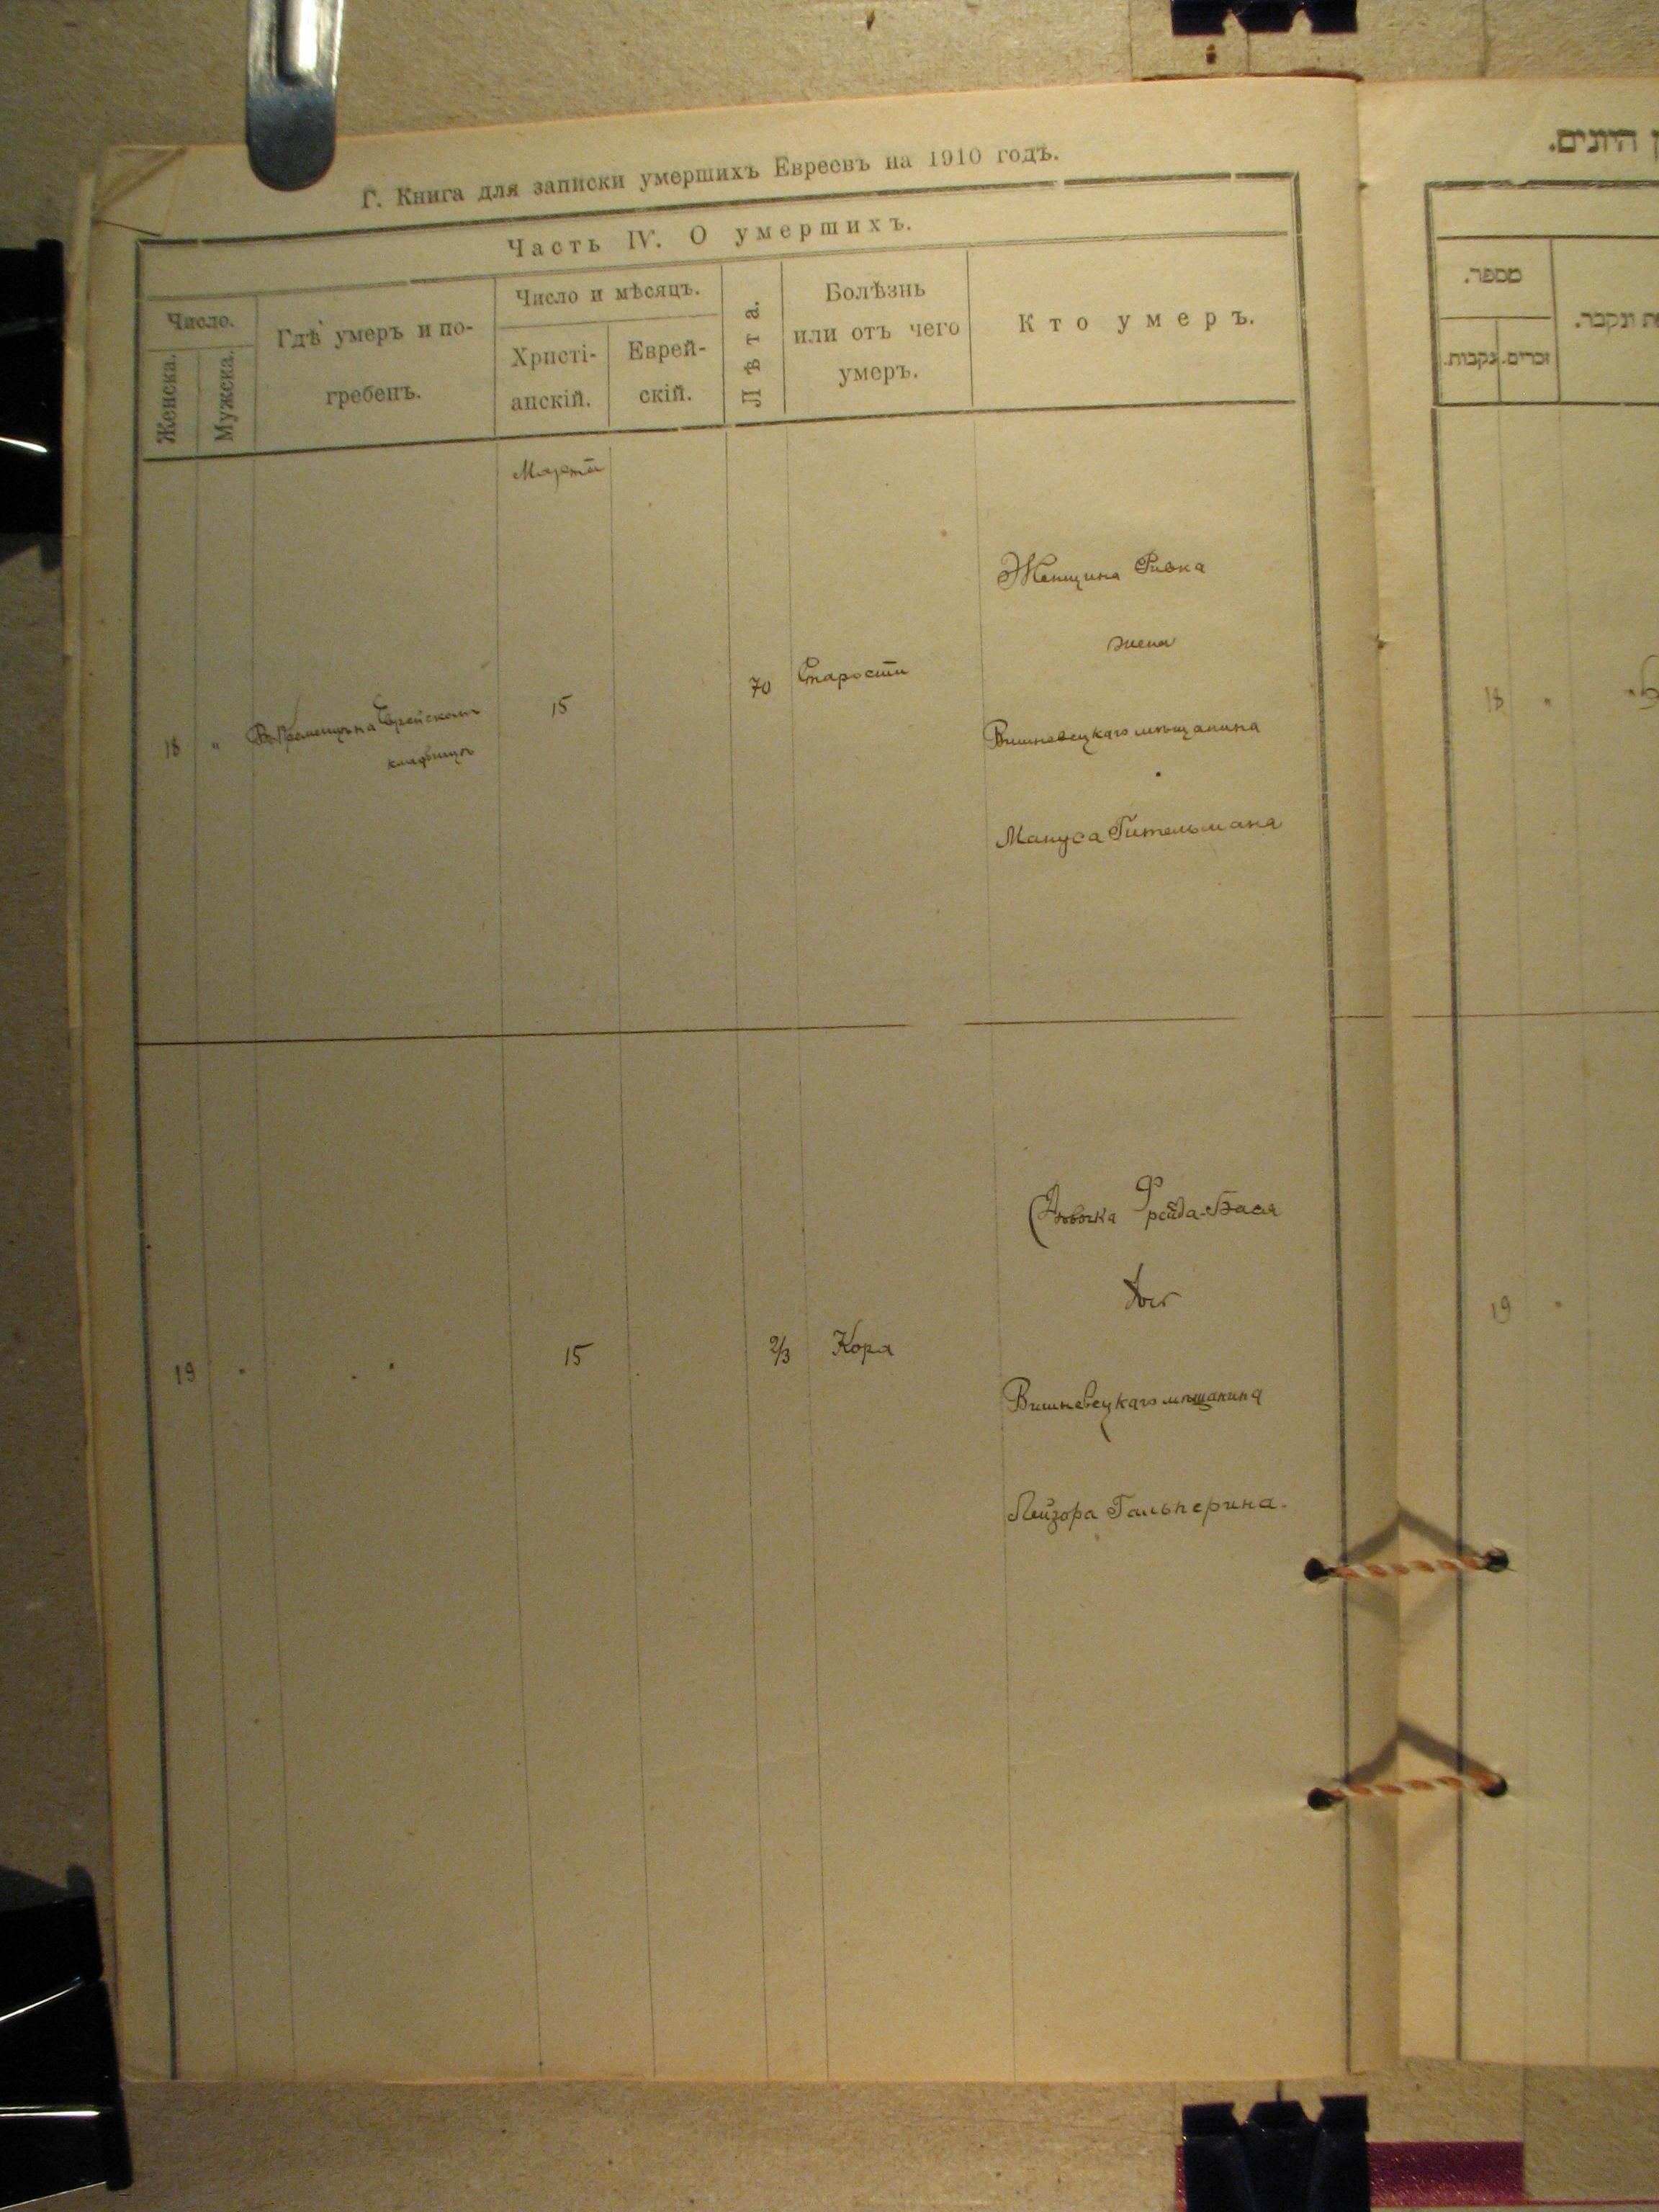 Г. Книга для записки умершихъ Евреевъ на 1910 годъ.
Часть IV. О умершихъ.
Число.
Женска.
Мужска.
Гдѣ умеръ и по-
гребенъ.
Число и мѣсяцъ.
Христі-
анскій.
Еврей-
скій.
Лѣта.
Болѣзнь
или отъ чего
умеръ.
Кто умеръ.
Марта
18 " Въ Кременцѣ на Еврейскомъ
кладбищѣ
15
70
Старости
Женщина Ривка
жена
Вишневецкаго мѣщанина
Мануса Гительмана
19 "
15
2/3
Кори
Дѣвочка Фрейда-Бася
дочь
Вишневецкаго мѣщанина
Лейзора Гальперина.
היונים.
מספר.
נקבות.
זכרים.
ונקבר.
18 "
19 "